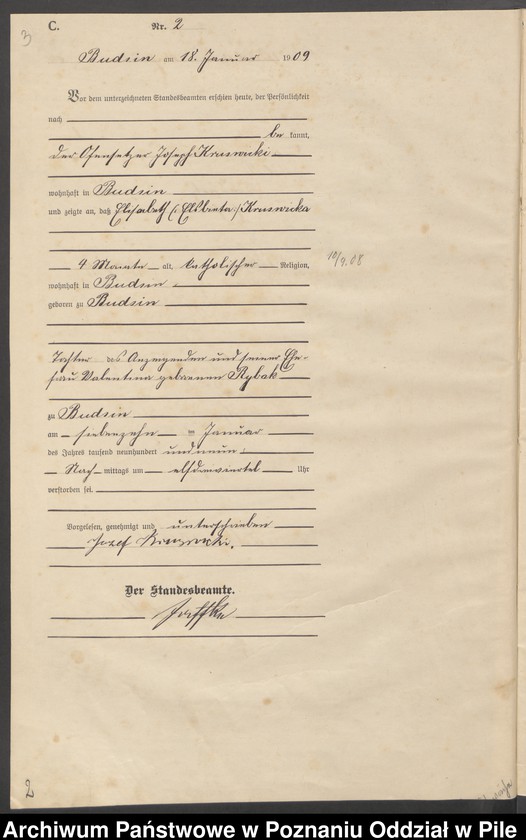 3
C. Nr. 2
Budsin am 18. Januar 1909
Vor dem unterzeichneten Standesbeamten erschien heute, der Persönlichkeit
nach
be kannt,
der Ofensetzer Joseph Kruswicki
wohnhaft in Budsin
und zeigte an, daß Elisabeth (: Elsbieta :) Kruswicka
4 Monate alt, katholischer Religion,
10/9.08
wohnhaft in Budsin
geboren zu Budsin
Tochter des Anzeigenden und seiner Ehe-
frau Valentina geborenen Rybak
zu Budsin
am siebenzehn ten Januar
des Jahres tausend neunhundert und neun
Nach mittags um elfdreiviertel Uhr
verstorben sei.
Vorgelesen, genehmigt und unterschrieben
Józef Kruswicki.
Der Standesbeamte.
2
Archiwum Państwowe w Poznaniu Oddział w Pile